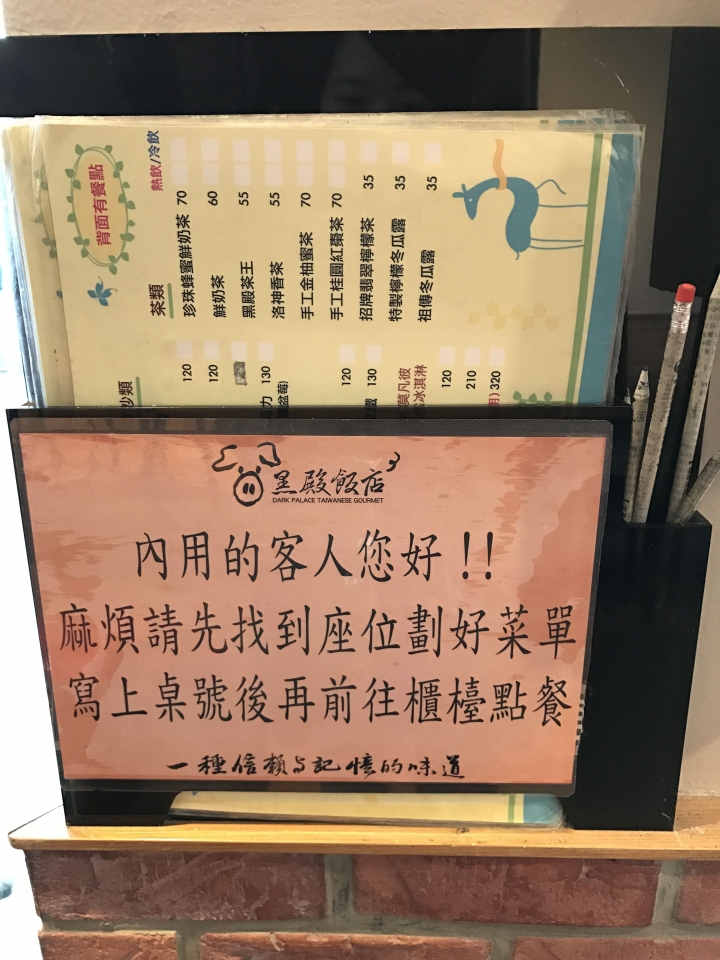 背面有餐點
熱飲/冷飲
茶類
珍珠蜂蜜鮮奶茶 70
鮮奶茶 60
黑殿茶王 55
洛神香茶 55
手工金柚蜜茶 70
手工桂圓紅棗茶 70
招牌翡翠檸檬茶 35
特製檸檬冬瓜露 35
祖傳冬瓜露 35
沙類
120
120
力 130
盆莓)
120
130
莫凡彼
冰淇淋
120
210
用) 320
黑殿飯店
DARK PALACE TAIWANESE GOURMET
內用的客人您好!!
麻煩請先找到座位劃好菜單
寫上桌號後再前往櫃檯點餐
一種信賴与記憶的味道